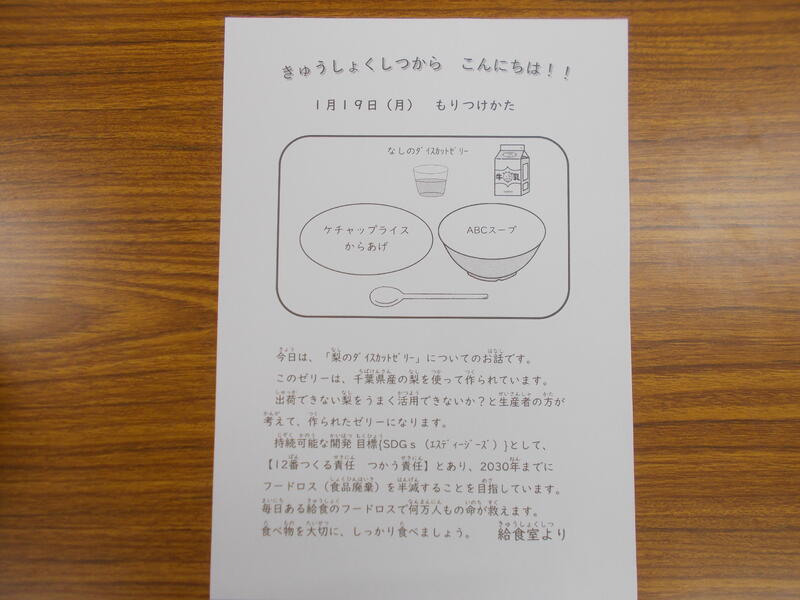 きゅうしょくしつから　こんにちは！！
１月１９日（月）　もりつけかた
なしのﾀﾞｲｽｶｯﾄｾﾞﾘｰ
牛乳
ケチャップライス
からあげ
ABCスープ
今日は、「梨のﾀﾞｲｽｶｯﾄｾﾞﾘｰ」についてのお話です。
このゼリーは、千葉県産の梨を使って作られています。
出荷できない梨をうまく活用できないか？と生産者の方が
考えて、作られたゼリーになります。
持続可能な開発目標{SDGｓ（ｴｽﾃﾞｨｰｼﾞｰｽﾞ）}として、
【12番つくる責任　つかう責任】とあり、2030年までに
フードロス（食品廃棄）を半減することを目指しています。
毎日ある給食のフードロスで何万人もの命が救えます。
食べ物を大切に、しっかり食べましょう。　給食室より